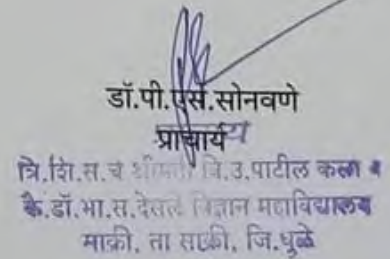 डॉ.पी.एस.सोनवणे
प्राचार्य
त्रि.शि.स.चे श्रीमती वि.उ.पाटील कला व
कै.डॉ.भा.स.देसले विज्ञान महाविद्यालय
साक्री, ता साक्री, जि.धुळे